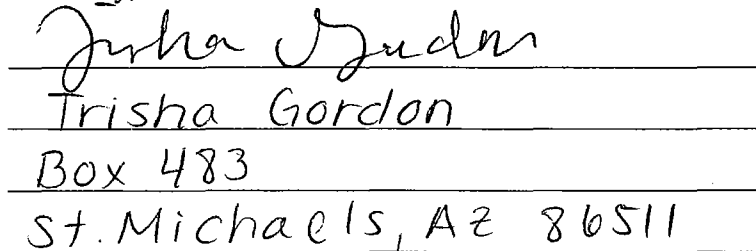 Trisha Gordon
Trisha Gordon
Box 483
St. Michaels, AZ 86511